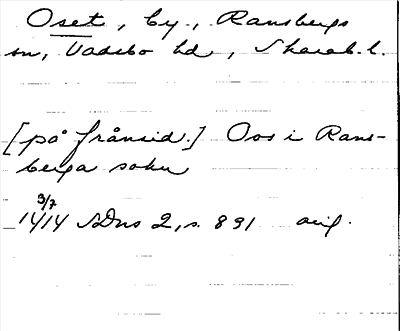 Oset, by, Ransbergs
sn, Vadsbo hd, Skarab. l.
[på frånsid.] Oos i Rans-
berga sokn
3/7
1414 SDns 2, s. 891 orig.